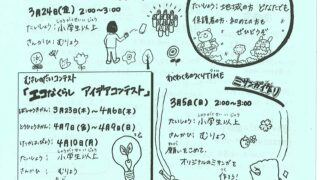 3月24日(金) 2:00〜3:00
たいしょう: 小学生以上
さんかひ: むりょう
たいしょう: 地域の どなたでも
保護者の方・初めての方も
ぜひどうぞ
むさしのだいコンテスト
「エコなくらし アイデアコンテスト」
3月23日(木)〜4月6日(木)
4月7日(金)〜4月9日(日)
4月10日(月)
たいしょう: 小学生以上
さんかひ: むりょう
わくわくものづくりTIME
ミサンガづくり
3月5日(日) 2:00〜3:00
たいしょう: 小学生以上
さんかひ: むりょう
願いをこめて、
オリジナルのミサンガを